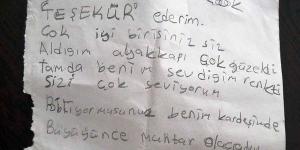 TEŞEKÜR ederim.
Çok iyi birisiniz siz
Aldığım ayakkapı çok güzeldi
tamda benim sevdiğim renkti
Sizi çok seviyorum
Biliyormusunuz benim kardeşimde
Büyüyünce muhtar olacak